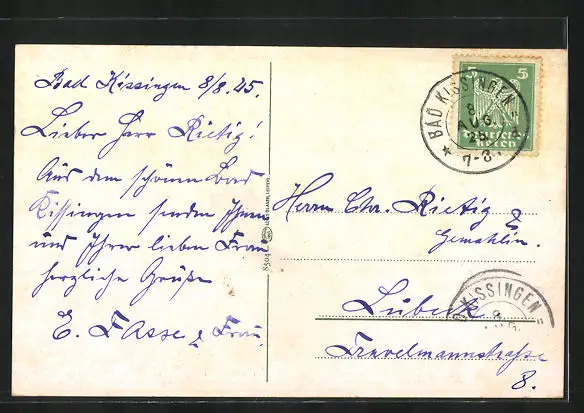 Bad Kissingen 8/8.25.
Lieber Herr Rietig!
Aus dem schönen Bad
Kissingen senden Ihnen
und Ihrer lieben Frau
herzliche Grüße
E. Fasse & Frau.
Herrn Chr. Rietig &
Gemahlin.
Lübeck
Travelmannstraße
8.
5 5
Deutsches
Reich
BAD KISSINGEN
8
AUG.
25
7-8
KISSINGEN
8
AUG.